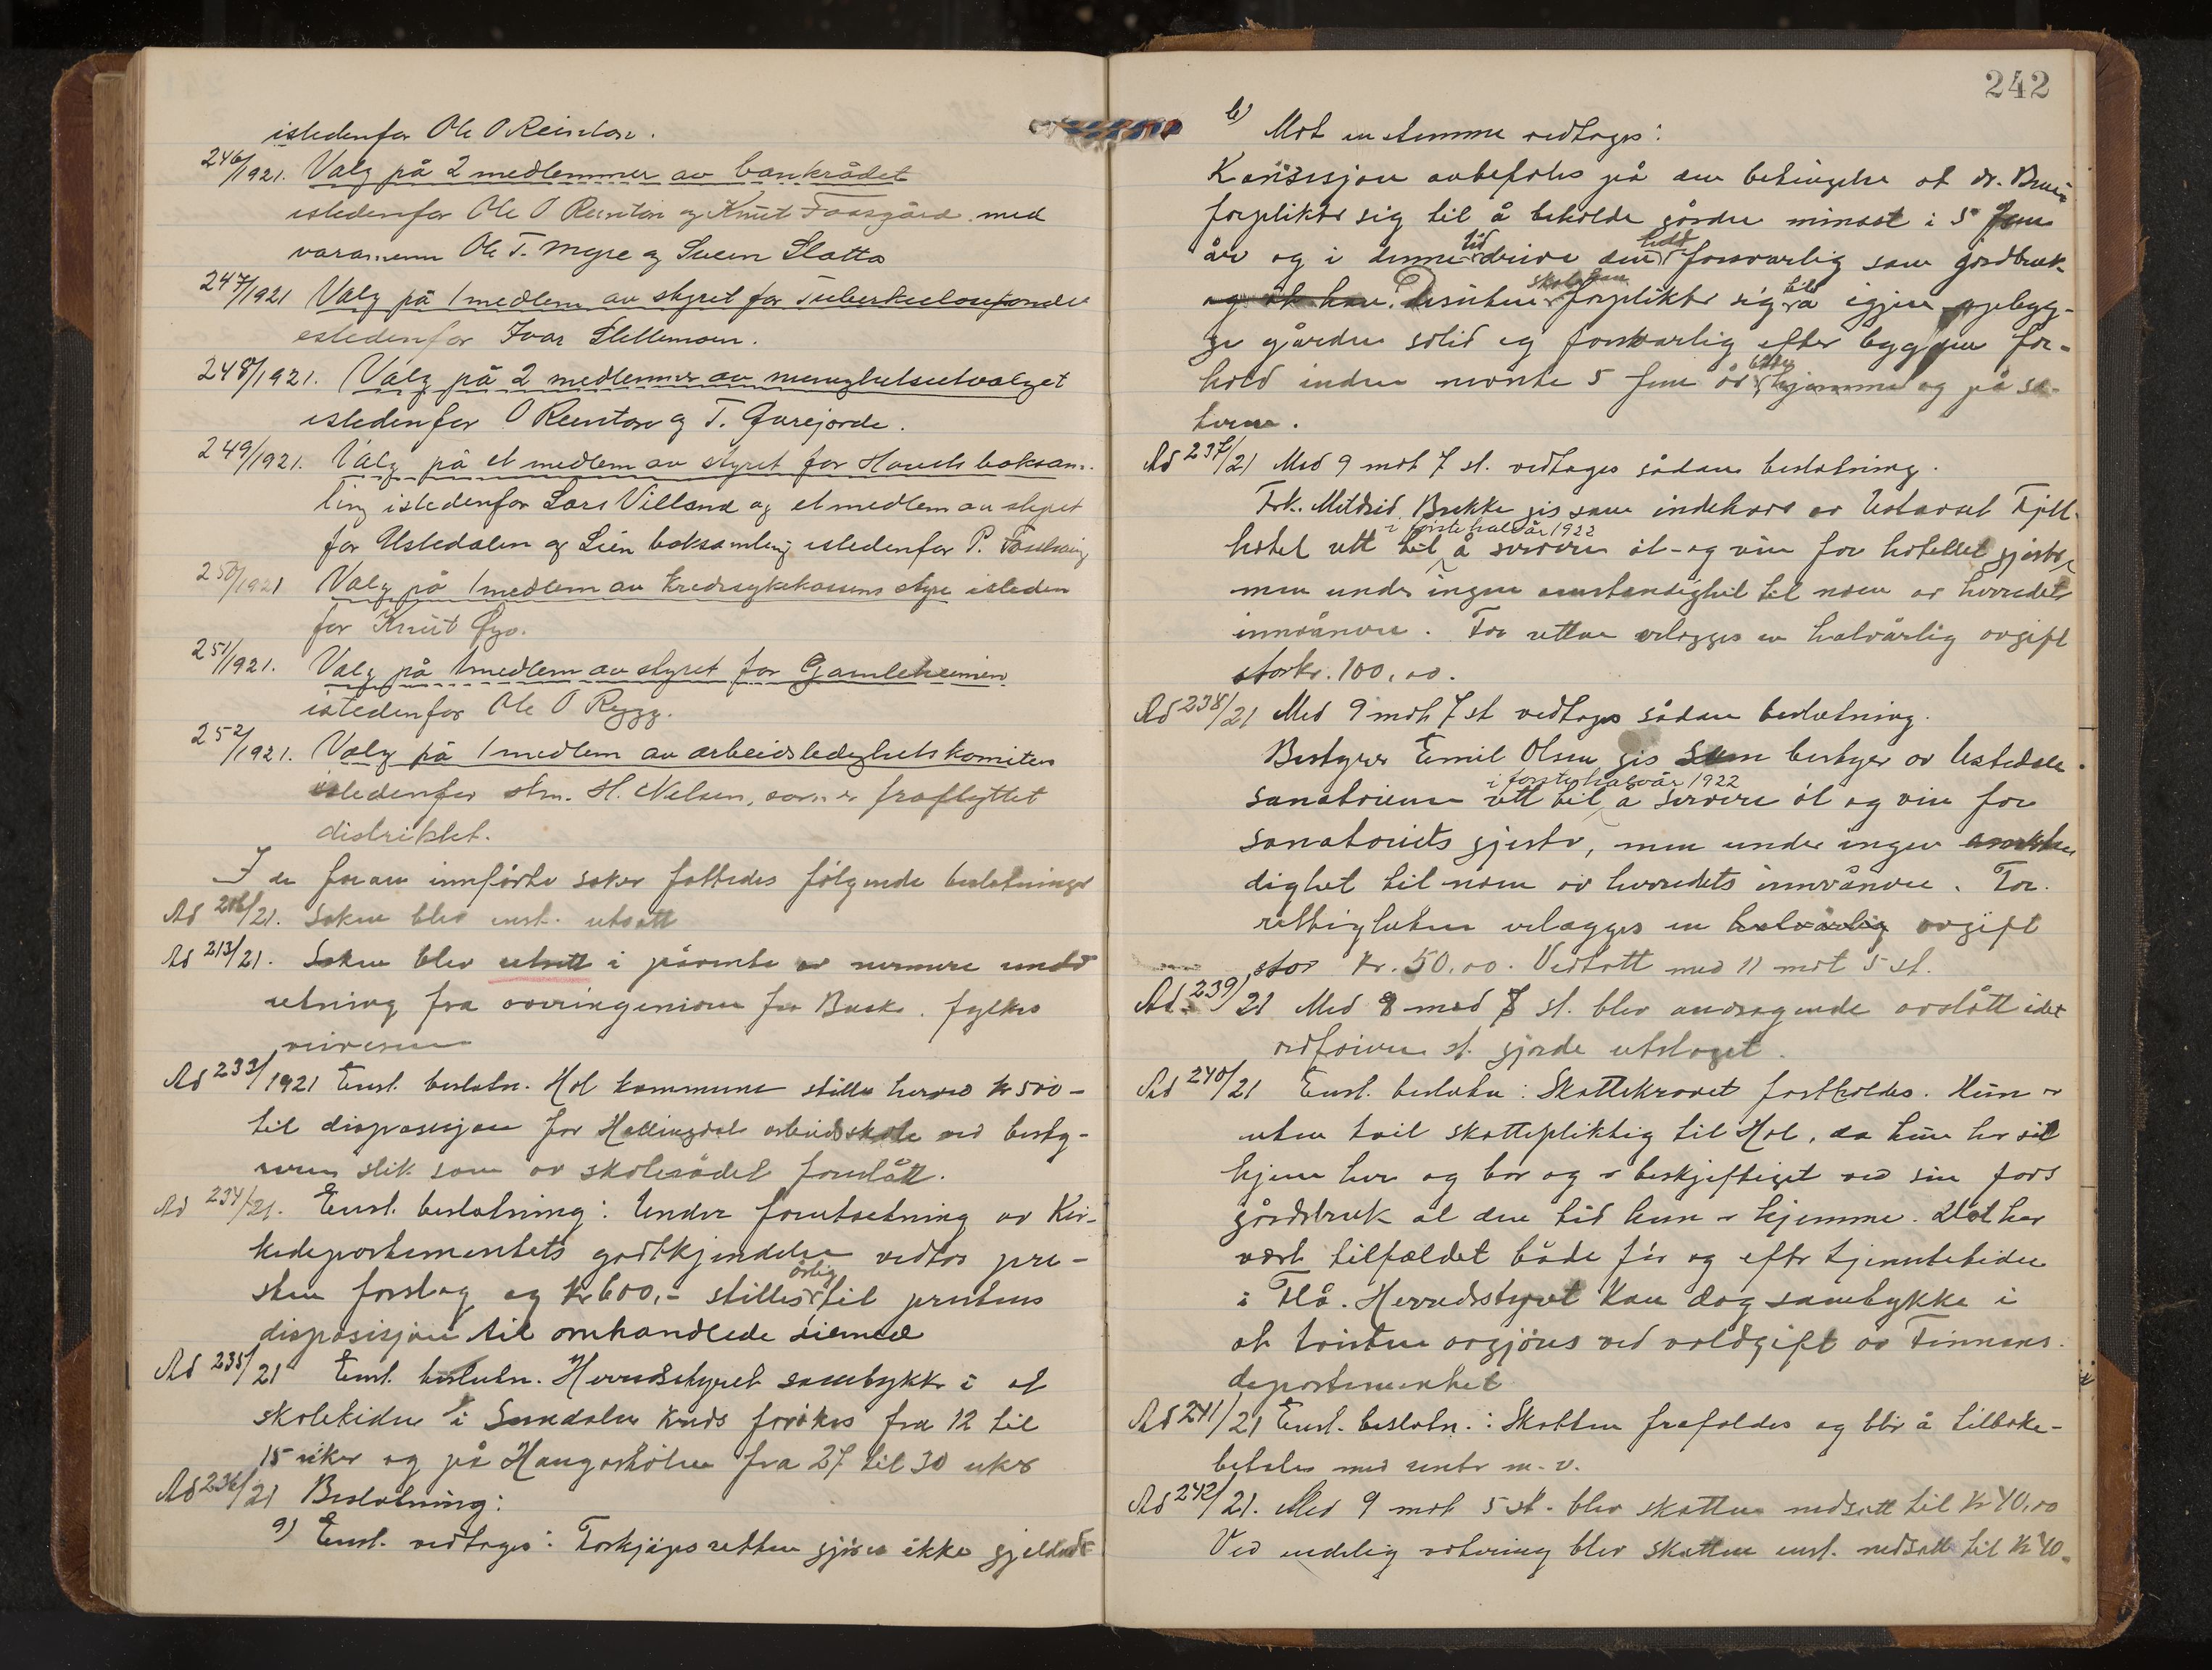 istedenfor Ole O Reinton.
246/1921. Valg på 2 medlemmer av bankrådet
istedenfor Ole O Reinton og Knut Faasgård med
varamenn Ole T. Myre og Svein Slatta
247/1921 Valg på 1 medlem av styret for Tuberkulosefondet
istedenfor Ivar Slettemoen.
248/1921. Valg på 2 medlemmer av menighetsutvalget
istedenfor O Reinton og T. Gurejorde.
249/1921. Valg på et medlem av styret for Hovets boksam-
ling istedenfor Lars Villand og et medlem av styret
for Ustedalen og Lien boksamling istedenfor P.
250/1921 Valg på 1 medlem av kredssykekassens styre isteden
for Knut Øyo.
251/1921. Valg på 1 medlem av styret for Gamleheimen
istedenfor Ole O Rygg.
252/1921. Valg på 1 medlem av arbeidsledighetskomiteen
istedenfor stm. H. Nelsen, som er fraflyttet
distriktet.
I de foran innførte saker fattedes følgende beslutninger
Ad 216/21. Saken blev enst. utsatt
Ad 213/21. Saken blev utsatt i påvente av nermere under
retning fra overingeniøren for Busk. fylkes
veivesen
Ad 233/1921 Enst. beslutn. Hol kommune stiller herved kr 500-
til disposisjon for Hallingdal arbeidsskole ved besty-
reren slik som av skolerådet foreslått.
Ad 234/21. Enst. beslutning: Under forutsetning av Kir-
kedepartementets godkjendelse vedtas pre-
sten forslag og kr 600,- stilles årlig til prestens
disposisjon til omhandlede øiemed
Ad 235/21 Enst. beslutn. Herredsstyret samtykker i at
skoletiden i Sundalen kreds forøkes fra 12 til
15 uker og på Haugasholen fra 27 til 30 uker
Ad 236/21 Beslutning:
a) Enst. vedtages: Forkjøpsretten gjøres ikke gjeldende
242
b) Mot en stemme vedtages:
Konsesjon anbefales på den betingelse at dr.
forplikter sig til å beholde gården minst i 5 fem
år og i denne tid drive den fuldt forsvarlig som gårdbruk
og at han. Desuten skal han forplikte sig til å igjen opbyg-
ge gården solid og forsvarlig efter bygdens for-
hold inden næste 5 fem år både hjemme og på se-
teren.
Ad 237/21 Med 9 mot 7 st. vedtages sådan beslutning.
Frk. Mildrid Brekke gis som indehaver av Ustaoset Fjell-
hotel rett til i første halvår 1922 å servere øl- og vin for hotellet gjester,
men under ingen omstendighet til noen av herredets
innvånere. For retten erlegges en halvårlig avgift
stor kr. 100,00.
Ad 238/21 Med 9 mot 7 st vedtages sådan beslutning.
Bestyrer Emil Olsen gis som bestyrer av Ustedalen
sanatorium rett til i første halvår 1922 å servere øl og vin for
sanatoriets gjester, men under ingen omsten
dighet til noen av herredets innvånere. For
rettigheten erlegges en halvårlig avgift
stor kr. 50,00. Vedtatt med 11 mot 5 st.
Ad 239/21 Med 8 mod 8 st. blev andragende avslått idet
ordføreren st. gjorde utslaget.
Ad 240/21 Enst. beslutn: Skattekravet fastholdes. Hun er
uten tvil skattepliktig til Hol, da hun har sit
hjem her og bor og er beskjeftiget ved sin fars
gårdsbruk al den tid hun er hjemme. Det har
vært tilfældet både før og efter tjenestetiden
i Flå. Herredsstyret kan dog samtykke i
at tvisten avgjøres ved voldgift av Finnans-
departementet
Ad 241/21 Enst. beslutn.: Skatten frafaldes og blir å tilbake-
betales med renter m.v.
Ad 242/21. Med 9 mot 5 st. blev skatten nedsatt til kr 40,00
Ved endelig votering blev skatten enst. nedsatt til kr 40.